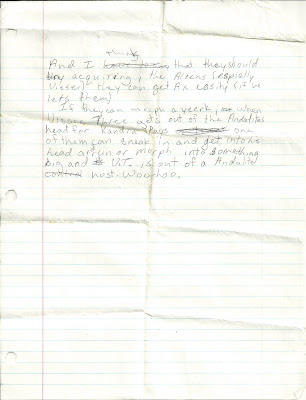 think
And I that they should
try acquiring, the Aliens (espially
Visser) they can get Ax easity (if he
lets them)
If they can morph a yeerk, when
Visser Three gets out of the Andalites
head for Kandra Rays one
of them can sneak in and get into his
head a run or morph into something
big and V.T. is out of a Andalite
host. Woo-hoo.